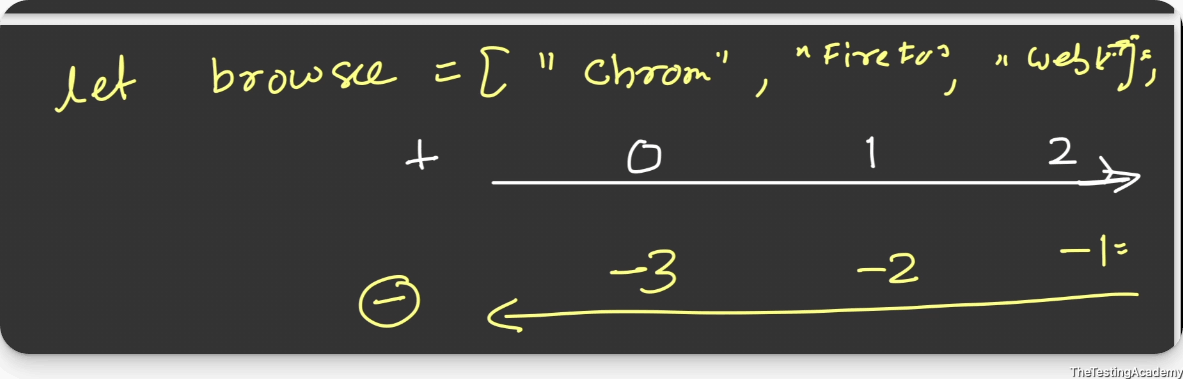 let browsee = [ "Chrom", "Firefox, "webk"];
+ 0 1 2
-3 -2 -1=
-
TheTestingAcademy